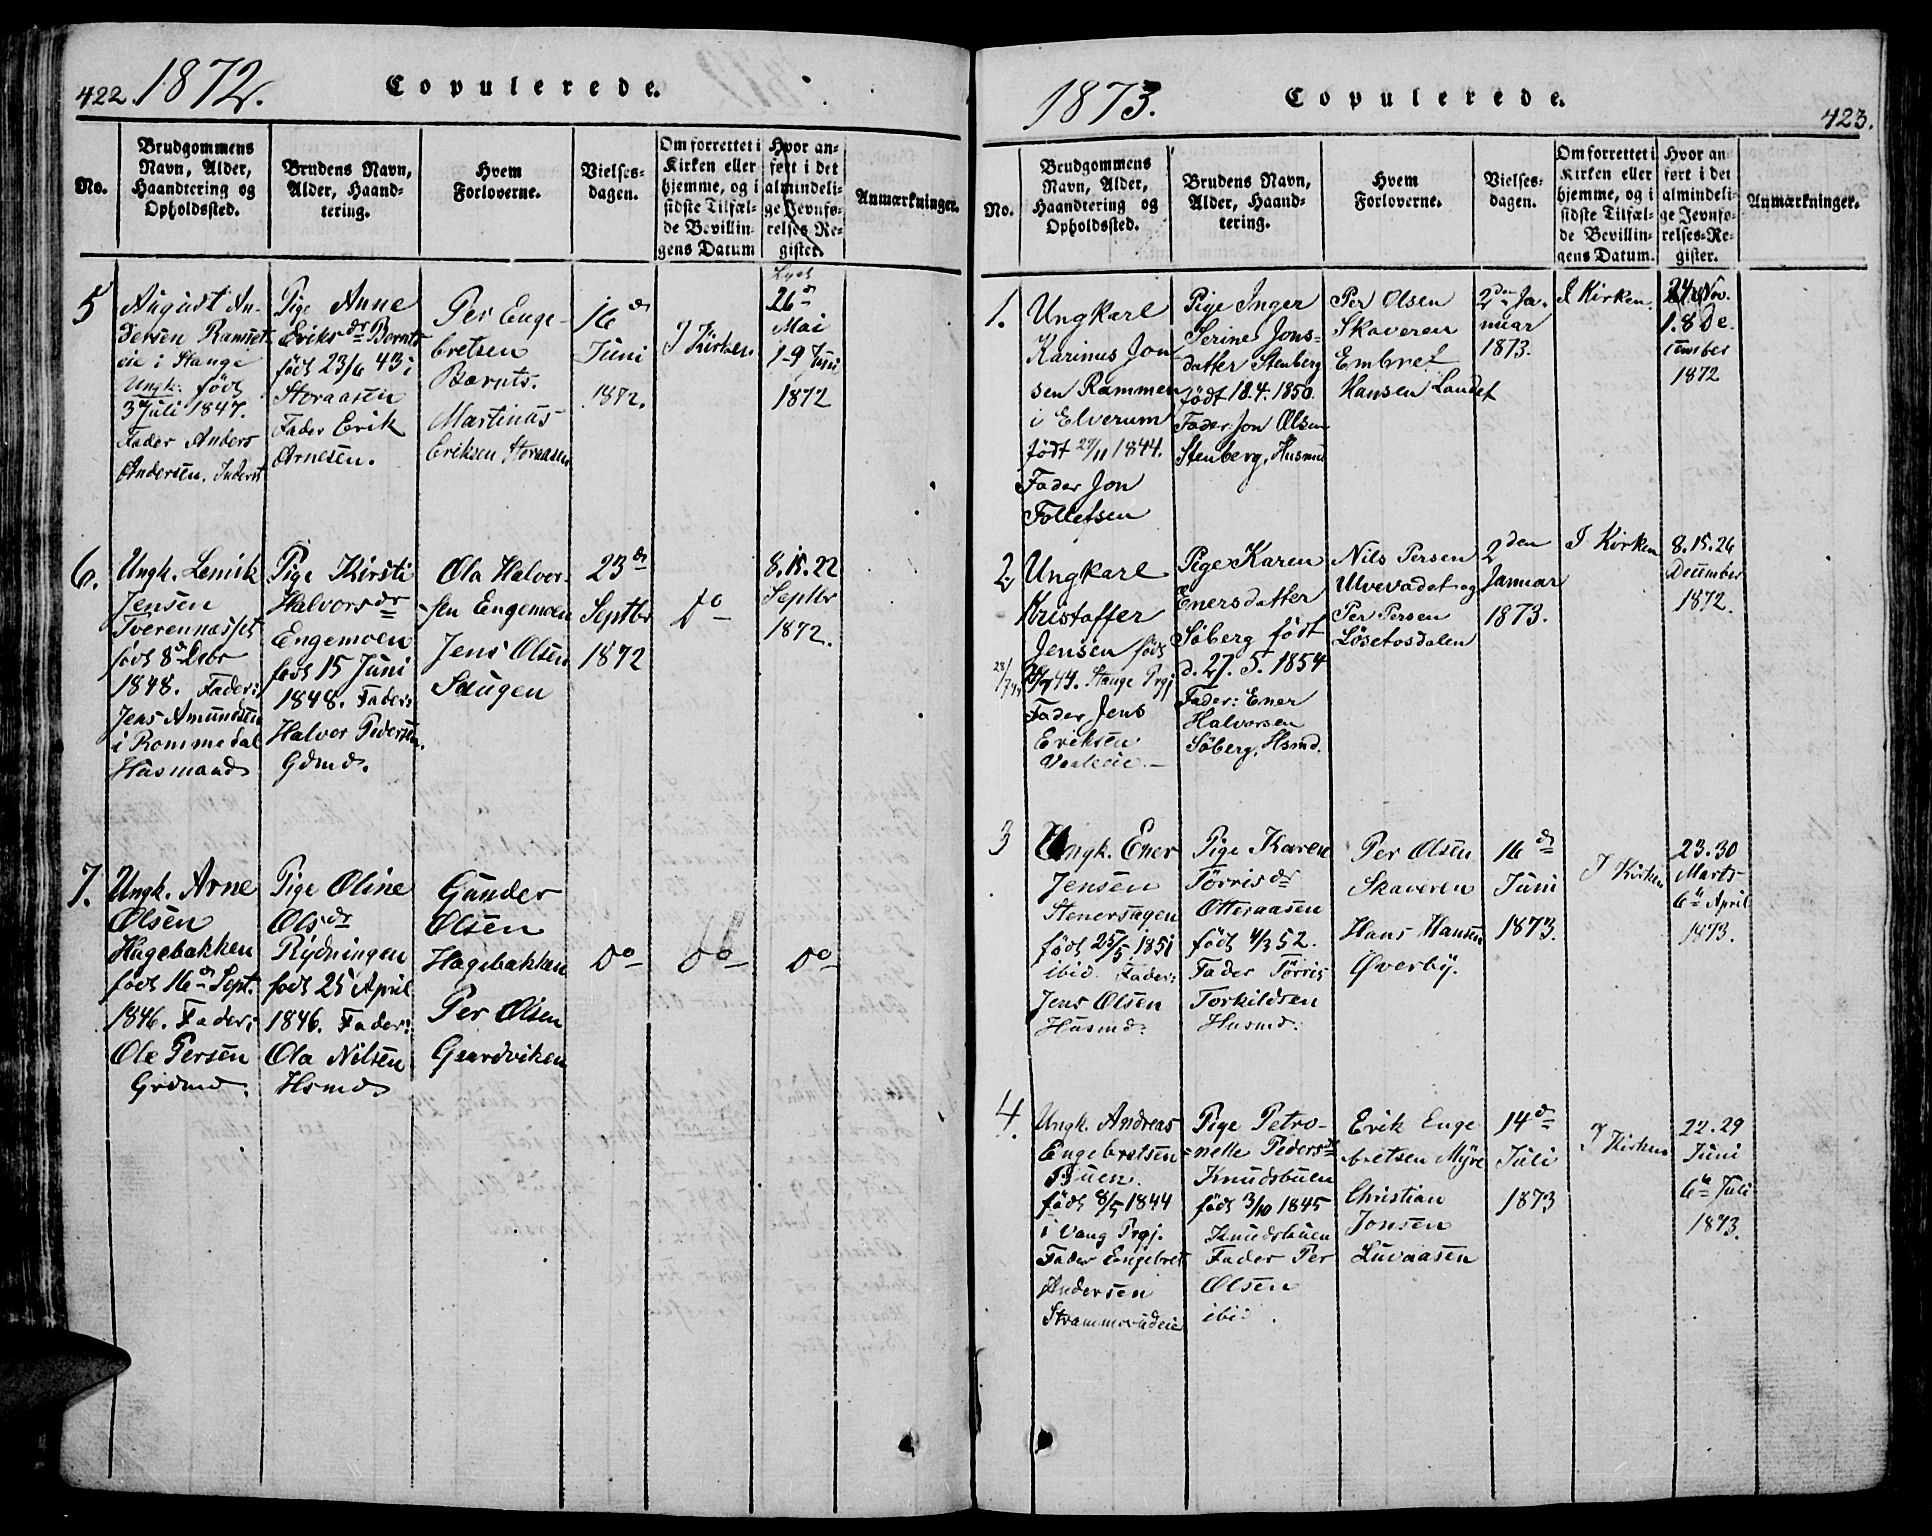 422. 1872. Copulerede.
No.
Brudgommens
Navn, Alder,
Haandtering og
Opholdssted.
Brudens Navn,
Alder, Haand-
tering.
Hvem
Forloverne.
Vielses-
dagen.
Om forrettet i
Kirken eller
hjemme, og i
sidste Tilfæl-
de Bevillin-
gens Datum
Hvor an-
ført i det
almindeli-
ge Jevnfø-
relses-Re-
gister.
Anmærkninger.
5
August An-
dersen
eie i Stange
Ungk. født
3 Juli 1847.
Fader Anders
Andersen.
Pige Anne
Eriksdr Bernts
født 23/6 43 i
Storaasen
Fader Erik
Arnesen.
Per Enge-
bretsen
Bernts.
Martinus
Eriksen Storaasen
16d
Juni
1872.
I Kirken
Lyst
26d
Mai
1-9 Juni
1872
6.
Ungk. Lemik
Jensen
Tverennæsset
født 8d Debr
1848. Fader:
Jens Amundsen
i Rommedal
Husmand
Pige Kirsti
Halvorsdr
Engemoen
født 15 Juni
1848. Fader:
Halvor Pedersen.
Gdmd.
Ola Halvor-
sen Engemoen
Jens Olsen
Saugen
23d
Septbr
1872
Do
8. 15. 22
Septbr
1872.
7.
Ungk. Arne
Olsen
Hagebakken
født 16d Sept.
1846. Fader:
Ole Persen
Grdmd.
Pige Oline
Olsdr
Rydningen
født 25 April
1846. Fader:
Ola Nilsen
Hsmd
Gunder
Olsen
Hagebakken
Per Olsen
Gaardviken
Do
Do
Do
1873. Copulerede.
423.
No.
Brudgommens
Navn, Alder,
Haandtering og
Opholdssted.
Brudens Navn,
Alder, Haand-
tering.
Hvem
Forloverne.
Vielses-
dagen.
Om forrettet i
Kirken eller
hjemme, og i
sidste Tilfæl-
de Bevillin-
gens Datum.
Hvor an-
ført i det
almindeli-
ge Jevnfø-
relses-Re-
gister.
Anmærkninger.
1.
Ungkarl
Karinus Jon-
sen Rammen
i Elverum
født 27/11 1844.
Fader Jon
Tollefsen
Pige Inger
Serine Jons-
datter Stenberg
født 18.4.1850.
Fader Jon Olsen
Stenberg, Husmd
Per Olsen
Skaveren
Embret
Hansen Landet
2den Ja-
nuar
1873.
I Kirken.
24 Nov.
1. 8 De-
cember
1872
2.
Ungkarl
Kristoffer
Jensen født
44. Stange Prgj
Fader Jens
Eriksen
Pige Karen
Enersdatter
Søberg født
d. 27. 5. 1854
Fader: Ener
Halvorsen
Søberg, Hsmd.
Nils Persen
Ulvevadet og
Per Persen
Løsetosdalen
2den
Januar
1873.
I Kirken
8. 15. 26
December
1872.
3
Ungk. Ener
Jensen
Stenersagen
født 25/5 1851
ibid. Fader:
Jens Olsen
Husmd.
Pige Karen
Tørrisdr
Otteraasen
født 4/3 52.
Fader Tørris
Torkildsen
Husmd.
Per Olsen
Skaveren
Hans Hansen
Øverby.
16d
Juni
1873.
I Kirken
23. 30
Marts
6te April
1873.
4.
Ungk. Andreas
Engebretsen
Buen.
født 8/5 1844
i Vang Prgj.
Fader Engebret
Andersen
Pige Petro-
nelle Pedersdr
Knudsbuen
født 3/10 1845
Knudsbuen
Fader Per
Olsen
ibid.
Erik Enge
bretsen Myre
Christian
Jonsen
Luvaasen
14d
Juli
1873
I Kirken
22. 29
Juni
6te Juli
1873.